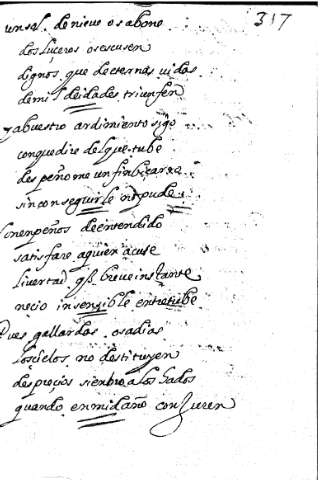 317
un sol. de nieve os abone
dos luçeros os escusen
dignos que de eternas vidas
de mil deidades triunfen
y a buestro ardimiento sigo
con que dire de lque tube
despeño me un fin biçarro
sin conseguirle no pude
empeños de entendido
satisfare a quien acuse
livertad q breve instante
necio insensible entretube
Pues gallardas osadias
los çielos no destituyen
despreçios siembro a los hados
quando en mi daño conjuren